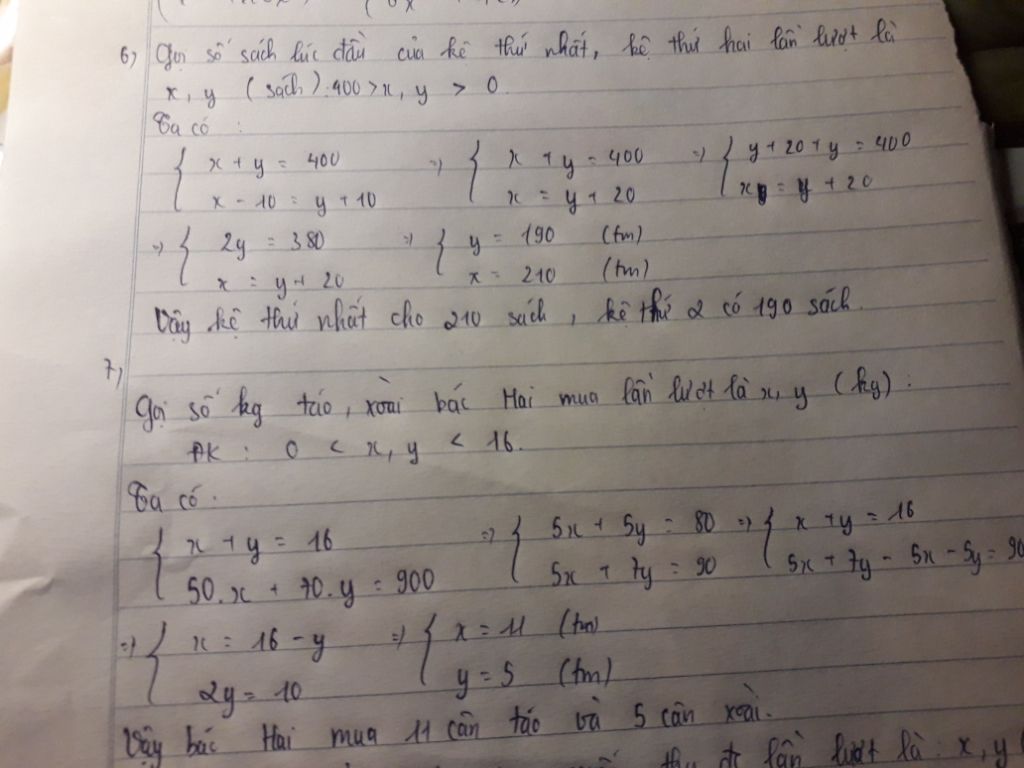 6) Gọi số sách lúc đầu của kệ thứ nhất, kệ thứ hai lần lượt là
x, y (sách): 400 > x, y > 0.
Ta có:
{ x + y = 400 => { x + y = 400 => { y + 20 + y = 400
x - 10 = y + 10 x = y + 20 x = y + 20
=> { 2y = 380 => { y = 190 (tm)
x = y + 20 x = 210 (tm)
Vậy kệ thứ nhất cho 210 sách, kệ thứ 2 có 190 sách.
7,
Gọi số kg táo, xoài bác Hai mua lần lượt là x, y (kg):
ĐK: 0 < x, y < 16.
Ta có.
{ x + y = 16 => { 5x + 5y = 80 => { x + y = 16
50.x + 70.y = 900 5x + 7y = 90 5x + 7y - 5x - 5y = 90
=> { x = 16 - y => { x = 11 (tm)
2y = 10 y = 5 (tm)
Vậy bác Hai mua 11 cân táo và 5 cân xoài.
lần lượt là: x, y